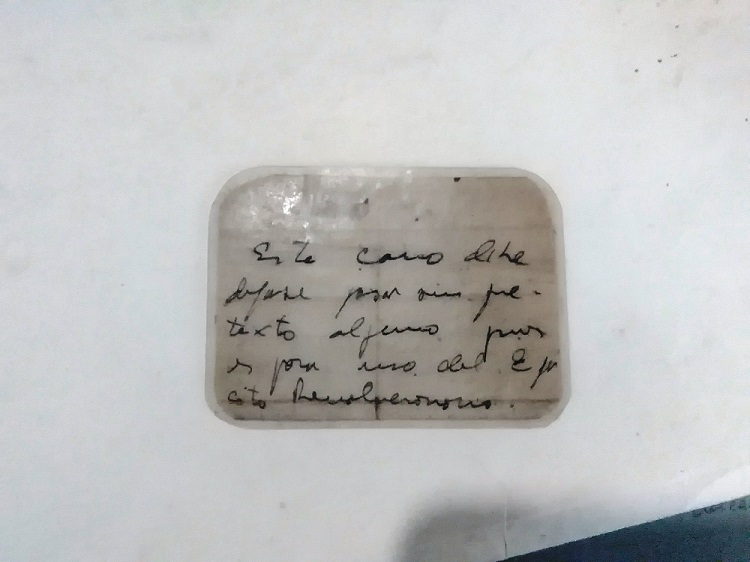 Este carro debe
dejarse pasar sin pre-
texto alguno pues
es para uso del Ejer
cito Revolucionario.